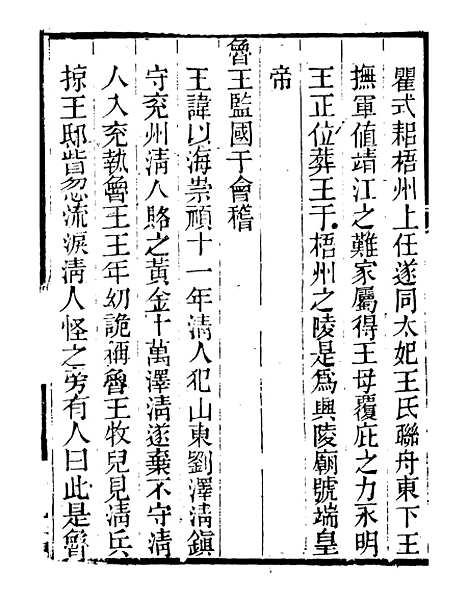 瞿式耜梧州上任遂同太妃王氏聯舟東下王
撫軍值靖江之難家屬得王母覆庇之力永明
王正位葬王于梧州之陵是爲興陵廟號端皇
帝
魯王監國于會稽
王諱以海崇禎十一年淸人犯山東劉澤淸鎮
守兖州淸人賂之黃金十萬澤淸遂棄不守淸
人入兖執魯王王年幼詭稱魯王牧兒見淸兵
掠王邸貲忽流淚淸人怪之旁有人曰此是魯